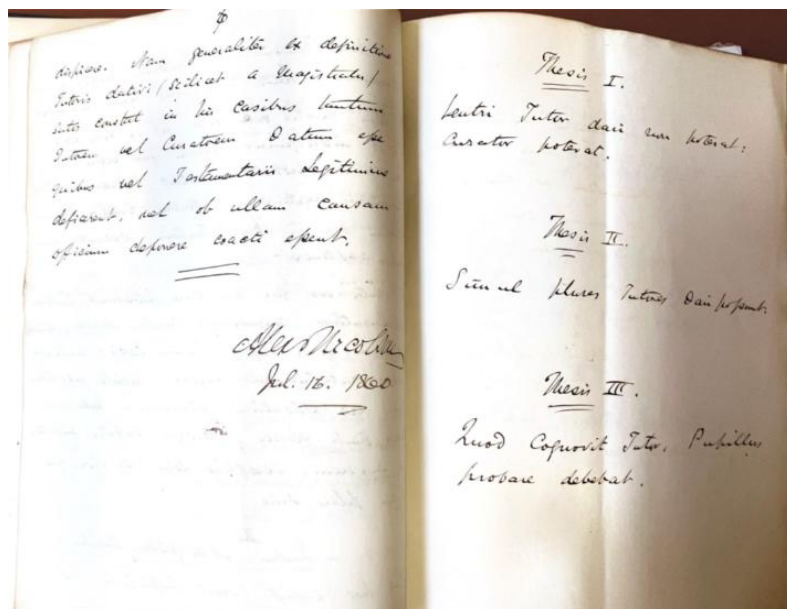 dispicere. Nam generaliter ex definitione
Tutoris dativi (scilicet a Magistratu)
satis constat in his casibus tantum
Tutorem vel Curatorem Datum esse
quibus vel Testamentarii Legitimive
deficerent, vel ob ullam causam
officium deponere coacti essent.
Jul. 16. 1860
Thesis I.
Ventri Tutor dari non poterat:
Curator poterat.
Thesis II.
Simul plures Tutores Dari possunt.
Thesis III.
Quod Cognovit Tutor, Pupillus
probare debebat.